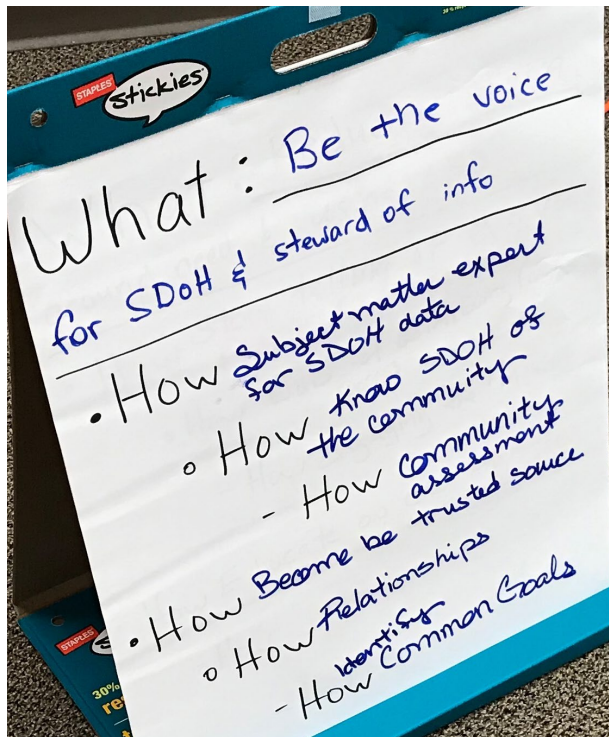 STAPLES
stickies
What: Be the voice
for SDoH & steward of info
• How Subject matter expert
for SDOH data
○ How Know SDOH of
the commuity
- How Community
assessment
• How Become be trusted source
○ How Relationships
- How Identify Common Goals
STAPLES
30%
re